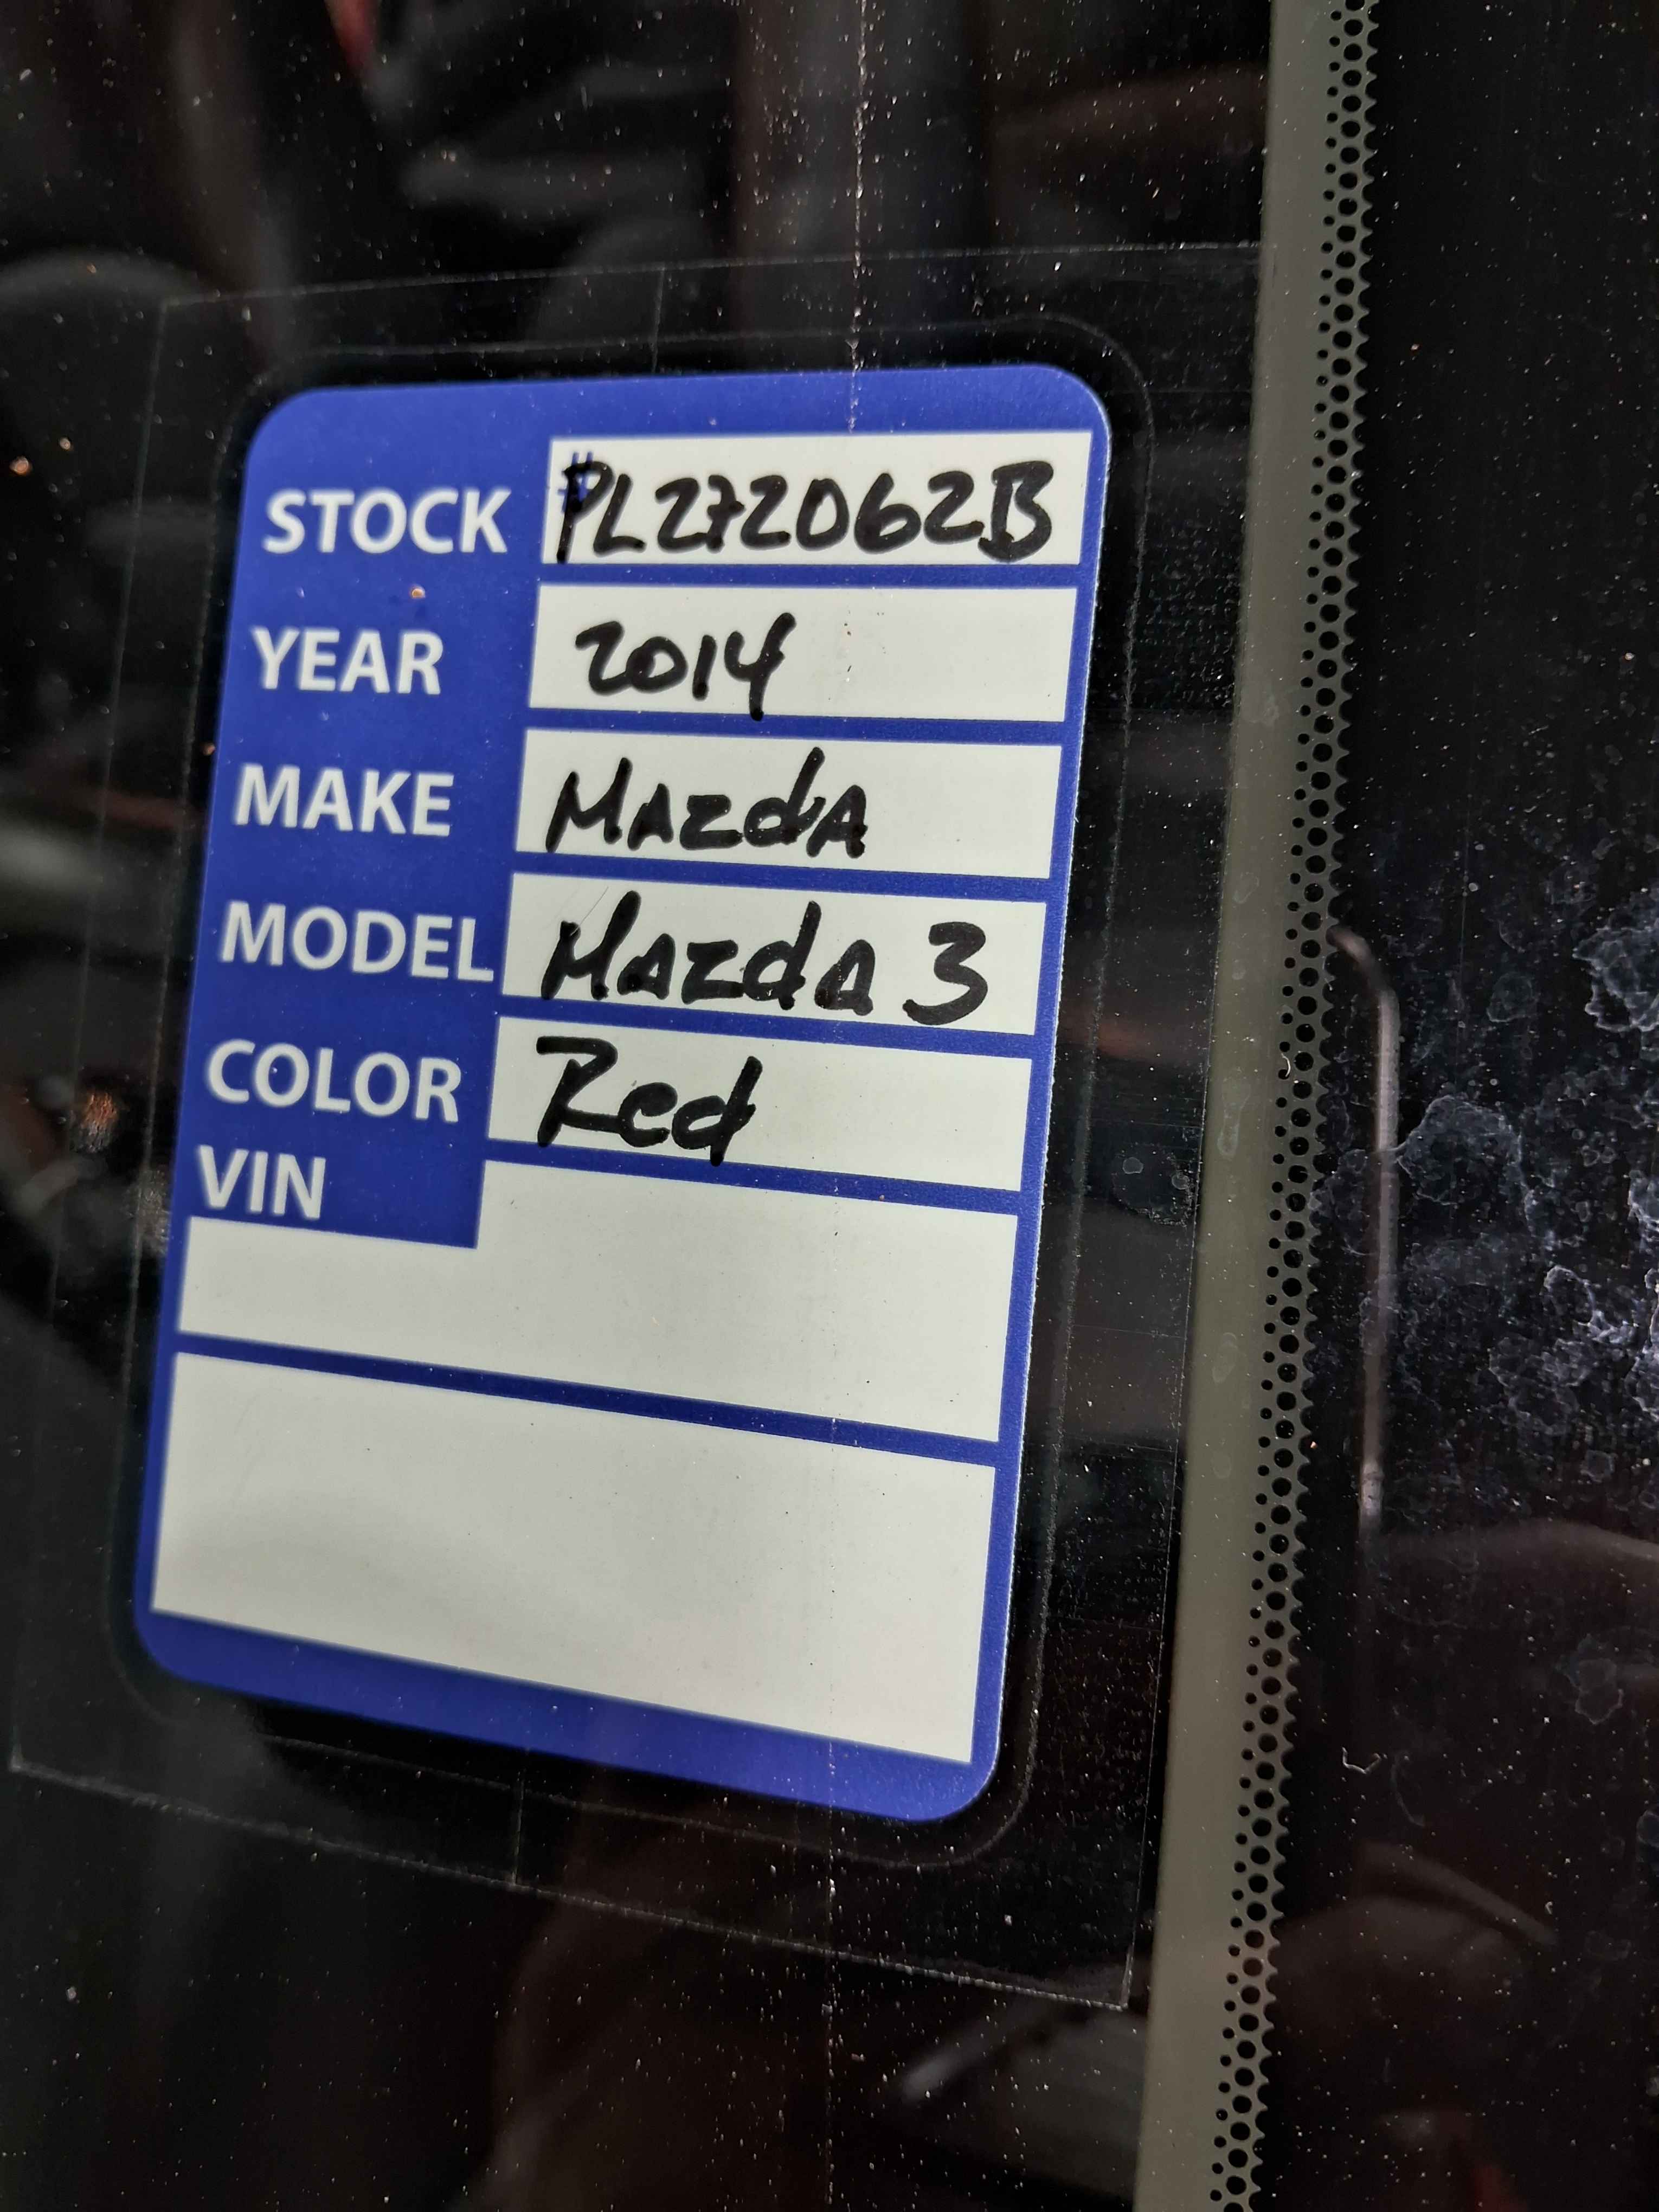 STOCK #PL272062B
YEAR 2014
MAKE MAzdA
MODEL MAzdA 3
COLOR Red
VIN